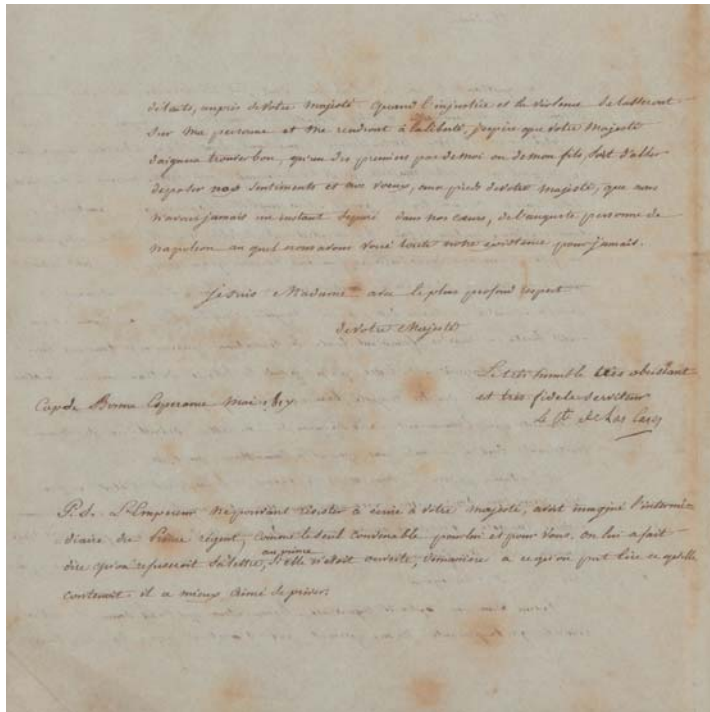 détails, auprès de Votre Majesté. Quand l'injustice et la violence de lasseront
sur ma personne et me rendront à la liberté, j'espère que Votre Majesté
daignera trouver bon, qu'un des premiers pas de moi ou de mon fils, soit d'aller
déposer nos sentiments et nos voeux, aux pieds de Votre Majesté, que nous
n'avons jamais un instant séparé dans nos coeurs, de l'auguste personne de
Napoléon au quel nous avons voué toute notre existence pour jamais.
Je suis Madame avec le plus profond respect
de Votre Majesté
Le très humble très obéissant
et très fidele serviteur
Cap de Bonne Esperance Mai 1817
le Cte de Las Cases
P. S. L'Empereur ne pouvant résister à écrire à Votre Majesté, avait imaginé l'intermé-
diaire du Prince régent, comme le seul convenable pour lui et pour Vous. on lui a fait
dire qu'on refuserait sa lettre, au même si elle n'était ouverte, de manière a ce qu'on put lire ce qu'elle
contenait il a mieux aimé se priver.